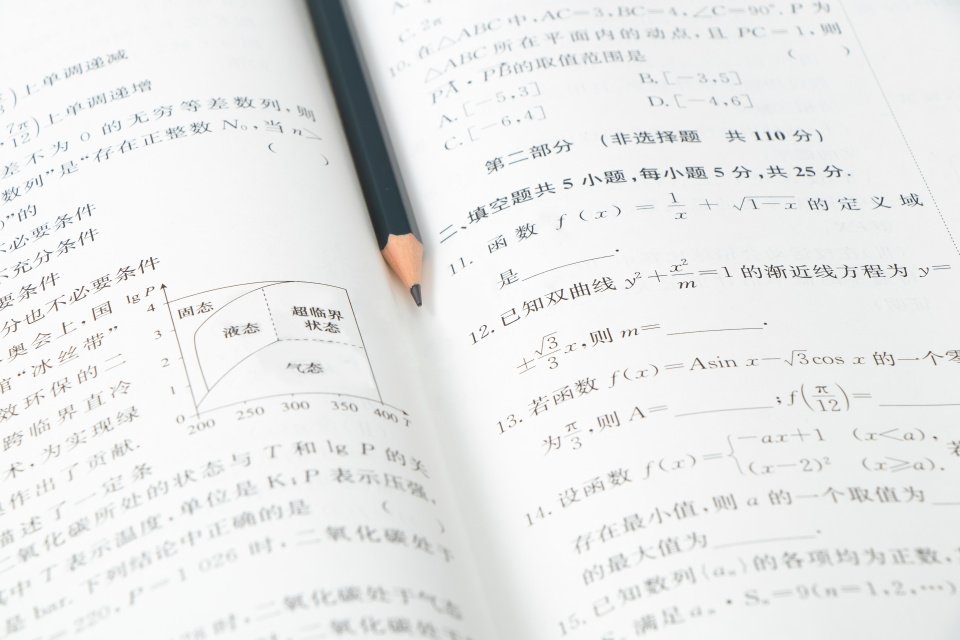 上单调递减
上单调递增
差不为 0 的无穷等差数列,则
数列”是“存在正整数 N₀,当 n>
( )
”的
必要条件
充分条件
要条件
分也不必要条件
奥会上,国
“冰丝带”
效环保的二
跨临界直冷
术,为实现绿
作出了贡献.
lg P
4
3
2
1
0
固态
液态
超临界
状态
气态
200 250 300 350 400 T
描述了一定条
二氧化碳所处的状态与 T 和 lg P 的关
其中 T 表示温度,单位是 K;P 表示压强,
是 bar. 下列结论中正确的是 ( )
=220,P=1 026 时,二氧化碳处于
时,二氧化碳处于气态
二氧化碳处于
C. 2π
10. 在△ABC 中,AC=3,BC=4,∠C=90°. P 为
△ABC 所在平面内的动点,且 PC=1,则
PA · PB的取值范围是 ( )
A. [-5,3] B. [-3,5]
C. [-6,4] D. [-4,6]
第二部分 (非选择题 共 110 分)
二、填空题共 5 小题,每小题 5 分,共 25 分.
11. 函数 f(x)=1/x+√1-x 的定义域
是______.
12. 已知双曲线 y²+x²/m=1 的渐近线方程为 y=
±√3/3 x,则 m=______.
13. 若函数 f(x)=Asin x-√3cos x 的一个零
为 π/3,则 A=______;f(π/12)=______
14. 设函数 f(x)={-ax+1 (x<a),
(x-2)² (x≥a). 若
存在最小值,则 a 的一个取值为____
的最大值为______.
15. 已知数列{aₙ}的各项均为正数,
满足 aₙ · Sₙ=9(n=1,2,…)